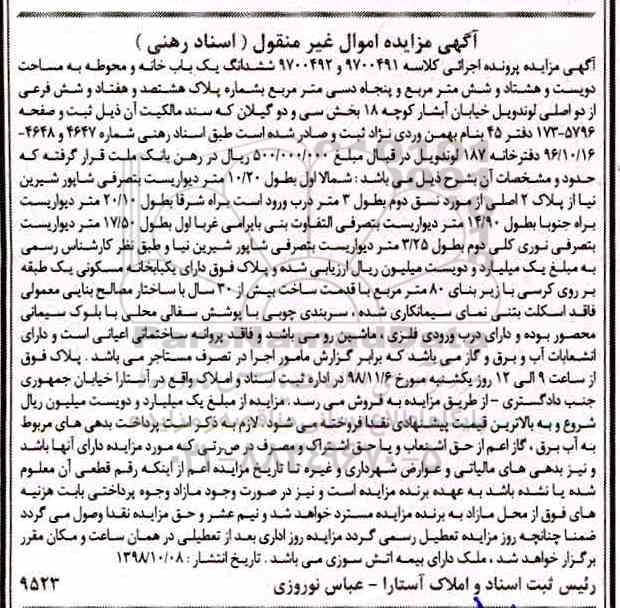 آگهی مزایده اموال غیر منقول ( اسناد رهنی )
آگهی مزایده پرونده اجرائی کلاسه ۹۷۰۰۴۹۱ و ۹۷۰۰۴۹۲ ششدانگ یک باب خانه و محوطه به مساحت
دویست و هشتاد و شش متر مربع و پنجاه دسی متر مربع بشماره پلاک هشتصد و هفتاد و شش فرعی
از دو اصلی لوندویل خیابان آبشار کوچه ۱۸ بخش سی و دو گیلان که سند مالکیت آن ذیل ثبت و صفحه
۵۷۹۶-۱۷۳ دفتر ۴۵ بنام بهمن وردی نژاد ثبت و صادر شده است طبق اسناد رهنی شماره ۴۶۴۷ و ۴۶۴۸-
۹۶/۱۰/۱۶ دفترخانه ۱۸۷ لوندویل در قبال مبلغ ۵۰۰/۰۰۰/۰۰۰ ریال در رهن بانک ملت قرار گرفته که
حدود و مشخصات آن بشرح ذیل می باشد : شمالا اول بطول ۱۰/۲۰ متر دیواریست بتصرفی شاپور شیرین
نیا از پلاک ۲ اصلی از مورد نسق دوم بطول ۳ متر درب ورود است براه شرقا بطول ۲۰/۱۰ متر دیواریست
براه جنوبا بطول ۱۴/۹۰ متر دیواریست بتصرفی التفاوت بنی بایرامی غربا اول بطول ۱۷/۵۰ متر دیواریست
بتصرفی نوری کلی دوم بطول ۳/۲۵ متر دیواریست بتصرفی شاپور شیرین نیا و طبق نظر کارشناس رسمی
به مبلغ یک میلیارد و دویست میلیون ریال ارزیابی شده و پلاک فوق دارای یکبابخانه مسکونی یک طبقه
بر روی کرسی با زیر بنای ۸۰ متر مربع با قدمت ساخت بیش از ۳۰ سال با ساختار مصالح بنایی معمولی
فاقد اسکلت بتنی نمای سیمانکاری شده ، سربندی چوبی با پوشش سفالی محلی با بلوک سیمانی
محصور بوده و دارای درب ورودی فلزی ، ماشین رو می باشد و فاقد پروانه ساختمانی اعیانی است و دارای
انشعابات آب و برق و گاز می باشد که برابر گزارش مامور اجرا در تصرف مستاجر می باشد . پلاک فوق
از ساعت ۹ الی ۱۲ روز یکشنبه مورخ ۹۸/۱۱/۶ در اداره ثبت اسناد و املاک واقع در آستارا خیابان جمهوری
جنب دادگستری - از طریق مزایده به فروش می رسد . مزایده از مبلغ یک میلیارد و دویست میلیون ریال
شروع و به بالاترین قیمت پیشنهادی نقدا فروخته می شود . لازم به ذکر است پرداخت بدهی های مربوط
به آب برق ، گاز اعم از حق اشتعاب و یا حق اشتراک و مصرف در صرتی که مورد مزایده دارای آنها باشد
و نیز بدهی های مالیاتی و عوارض شهرداری و غیره تا تاریخ مزایده اعم از اینکه رقم قطعی آن معلوم
شده یا نشده باشد به عهده برنده مزایده است و نیز در صورت وجود مازاد وجوه پرداختی بابت هزینه
های فوق از محل مازاد به برنده مزایده مسترد خواهد شد و نیم عشر و حق مزایده نقدا وصول می گردد
ضمنا چنانچه روز مزایده تعطیل رسمی گردد مزایده روز اداری بعد از تعطیلی در همان ساعت و مکان مقرر
برگزار خواهد شد ، ملک دارای بیمه اتش سوزی می باشد . تاریخ انتشار : ۱۳۹۸/۱۰/۰۸
رئیس ثبت اسناد و املاک آستارا - عباس نوروزی ۹۵۲۳